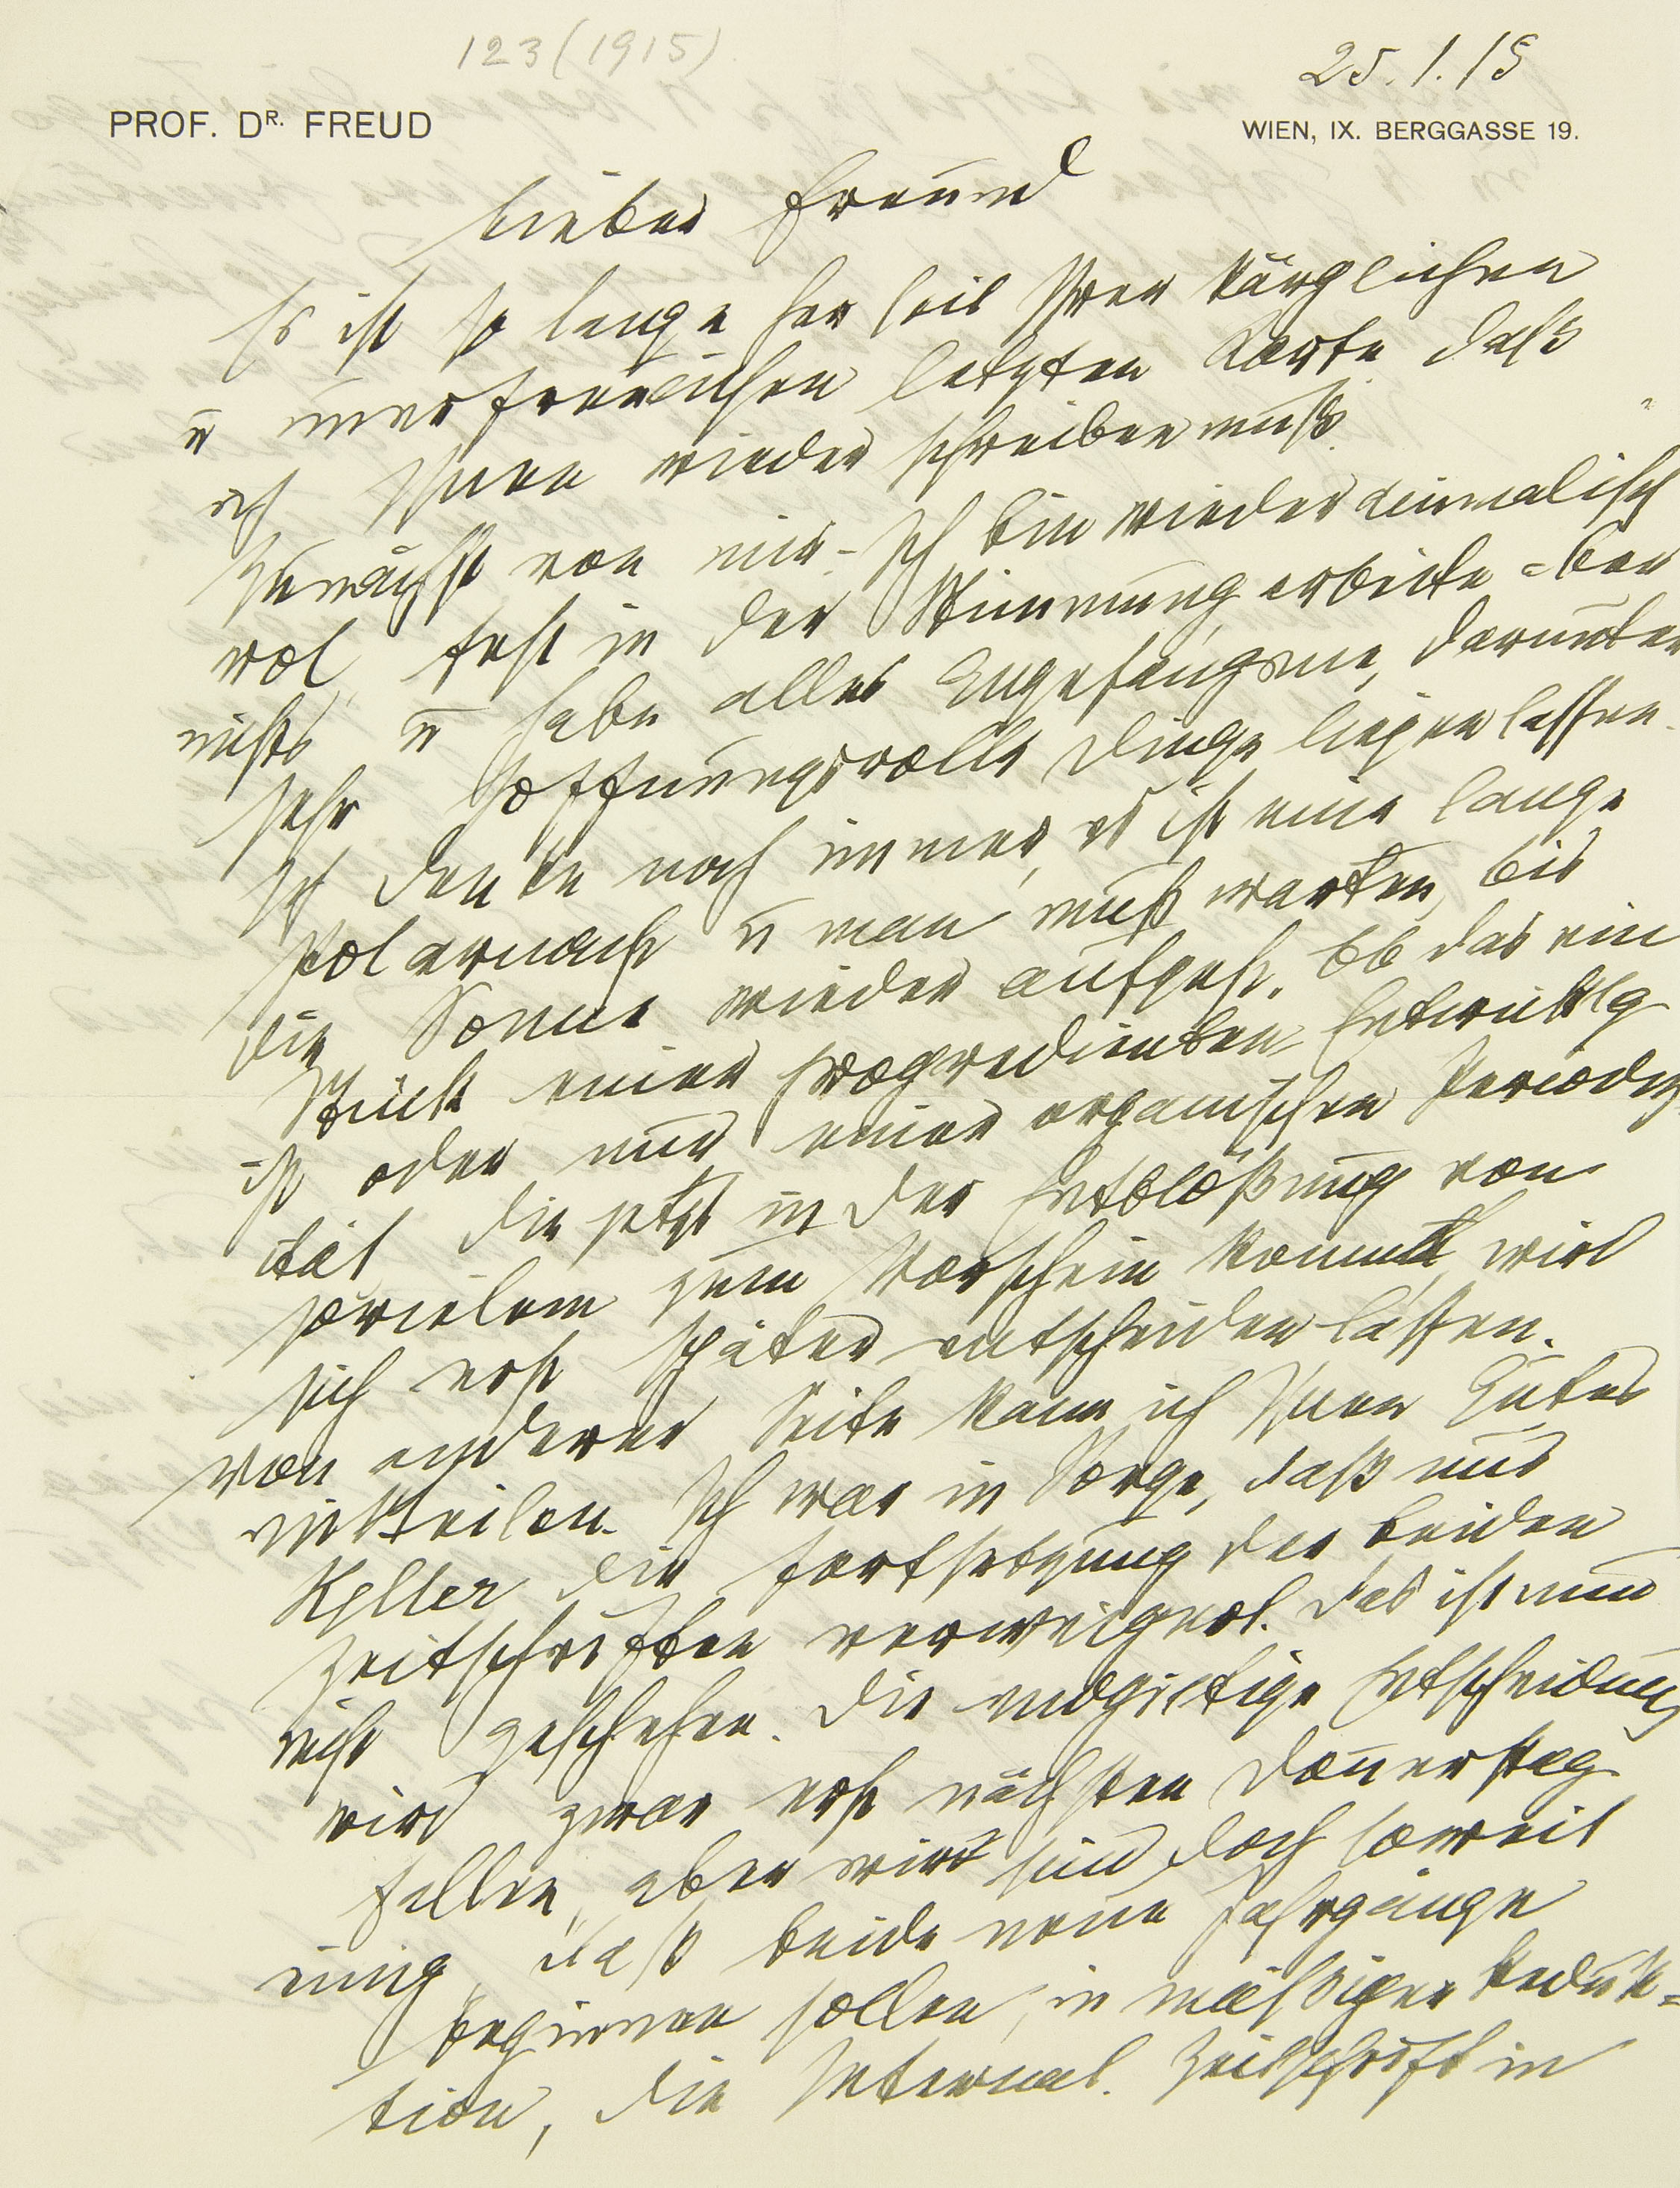 123 (1915)
25.1.15
PROF. DR. FREUD
WIEN, IX. BERGGASSE 19.
Lieber Freund
Es ist so lange her seit Ihrer kärglichen
u unerfreulichen letzten Karte daß
ich Ihnen wieder schreiben muß.
Zunächst von mir. Ich bin wieder einmal
wol fest in der Stimmung, arbeite aber
nichts u habe alles Angefangene, darunter
sehr hoffnungsvolle Dinge liegen lassen.
Ich denke noch immer, es ist eine lange
Polarnacht u man muß warten, bis
die Sonne wieder aufgeht. Ob das ein
Stück einer progredienten Entwicklg
ist oder nur einer organischen Periodiz
ität die jetzt in der Entblößung von
sovielem zum Vorschein kommt, wird
sich erst später entscheiden lassen.
Von anderer Seite kann ich Ihnen Gutes
mitteilen. Ich war in Sorge, daß uns
Heller die Fortsetzung der beiden
Zeitschriften verweigert. Das ist nun
nicht geschehen. Die endgiltige Entscheidung
wird zwar erst nächsten Donnerstag
fallen, aber wir sind doch soweit
einig, daß beide neue Jahrgänge
beginnen sollen, in mäßiger Reduk=
tion, die Internat. Zeitschrift in